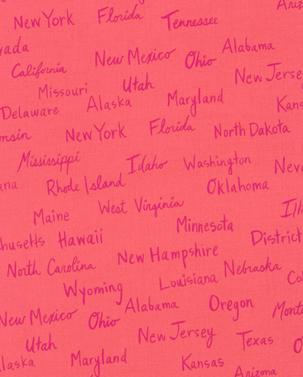 New York Florida Tennessee Ariz
vada New Mexico Ohio Alabama
California Utah New Jersey
Missouri
Delaware Alaska Maryland Kan
nsin New York Florida North Dakota
Mississippi Idaho Washington Nev
ana Rhode Island Oklahoma
Maine West Virginia Ill
Minnesota
husetts Hawaii District
North Carolina New Hampshire
Wyoming Louisiana Nebraska Co
New Mexico Ohio Alabama Oregon Mont
Utah New Jersey Texas O
laska Maryland Kansas Arizona